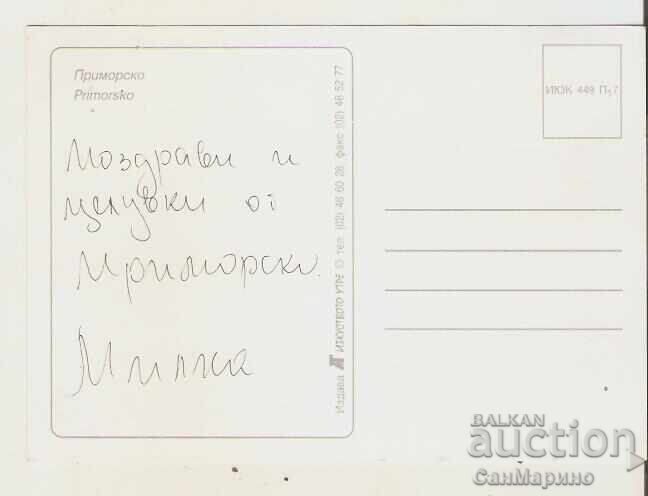 Приморско
Primorsko
Поздрави и
целувки от
Приморско.
Милка
Издава ИЗКУСТВОТО УТРЕ © тел. (02) 46 60 28 факс (02) 46 52 77
ИКЭК 449 П 17
BALKAN
auction
СанМарино